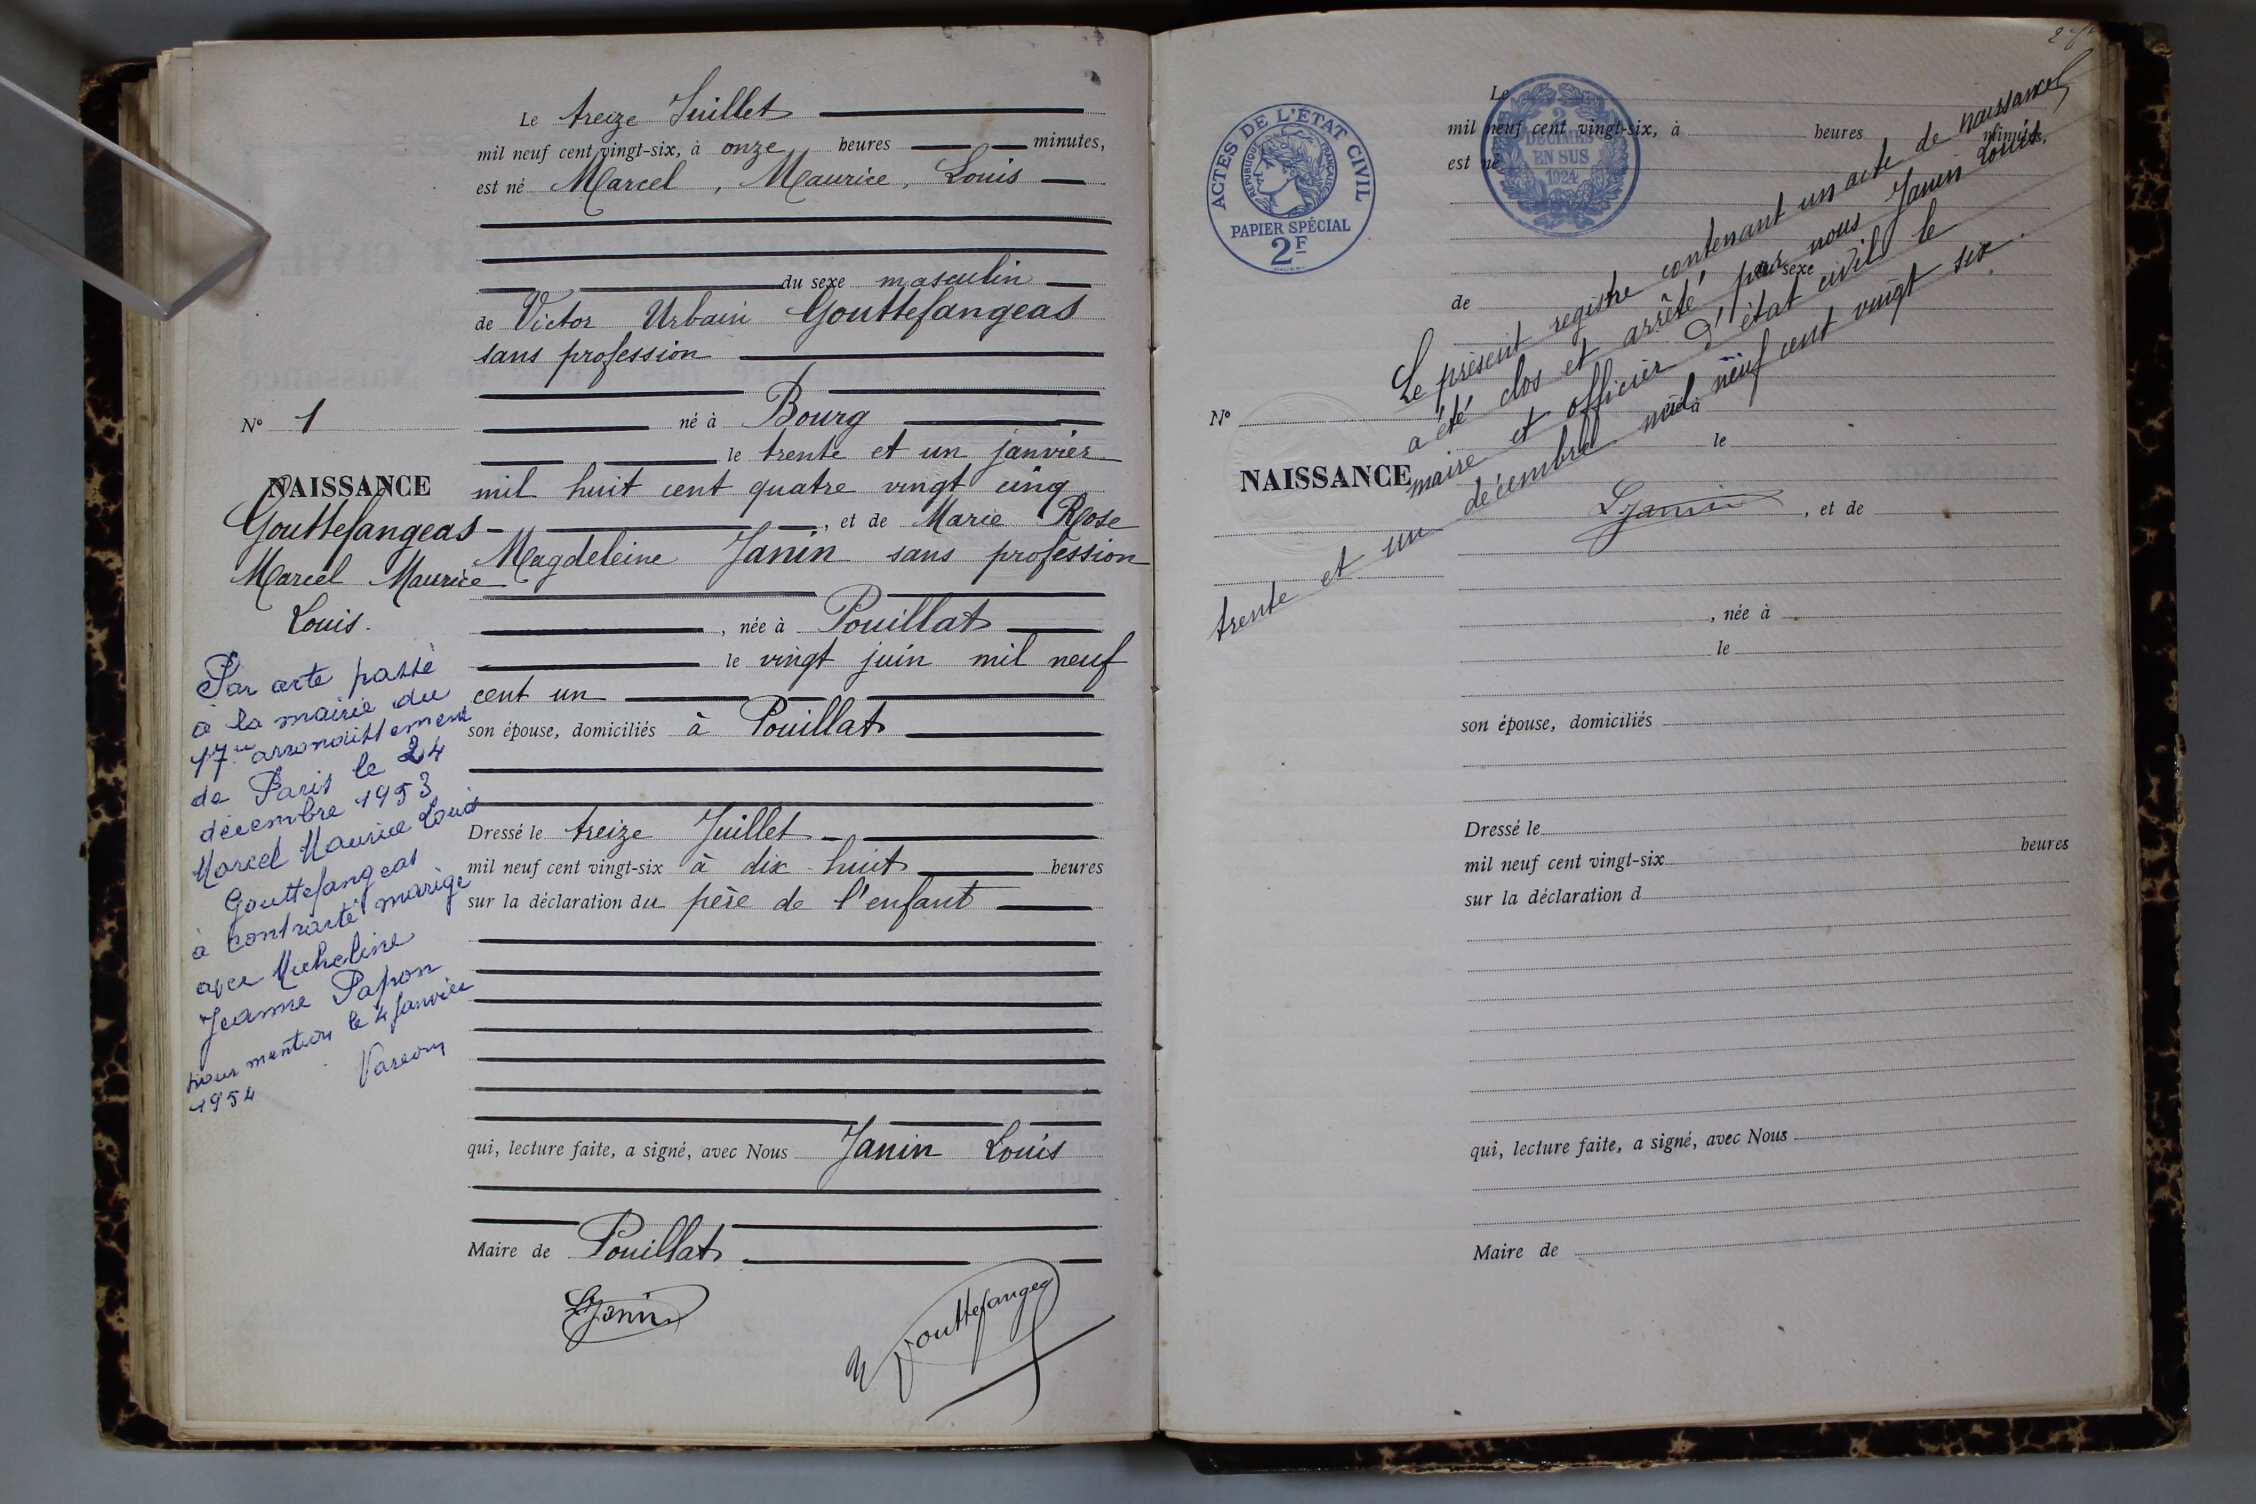 Le treize Juillet
mil neuf cent vingt-six, à onze heures minutes,
est né Marcel, Maurice, Louis
du sexe masculin
de Victor Urbain Gouttefangeas
sans profession
né à Bourg
le trente et un janvier
mil huit cent quatre vingt cinq
, et de Marie Rose
Magdeleine Janin sans profession
, née à Pouillat
le vingt juin mil neuf
cent un
son épouse, domiciliés à Pouillat
Dressé le treize Juillet
mil neuf cent vingt-six à dix-huit heures
sur la déclaration du père de l'enfant
qui, lecture faite, a signé, avec Nous Janin Louis
Maire de Pouillat
LJanin
Gouttefangeas
No 1
NAISSANCE
Gouttefangeas
Marcel Maurice
Louis.
Par acte passé
à la mairie du
17e arrondissement
de Paris le 24
décembre 1953
Marcel Maurice Louis
Gouttefangeas
à contracté marige
avec Micheline
Jeanne Papon
pour mention le 4 Janvier
1954
ACTES DE L'ÉTAT CIVIL
RÉPUBLIQUE FRANÇAISE
PAPIER SPÉCIAL
2F
2
DÉCIMES
EN SUS
1924
Le
mil neuf cent vingt-six, à heures minutes,
est né
du sexe
de
né à
le
, et de
, née à
le
son épouse, domiciliés
Dressé le
mil neuf cent vingt-six heures
sur la déclaration d
qui, lecture faite, a signé, avec Nous
Maire de
No
NAISSANCE
Le présent registre contenant un acte de naissance
a été clos et arrêté par nous Janin Louis,
maire et officier d'état civil le
trente et un décembre mil neuf cent vingt six.
LJanin